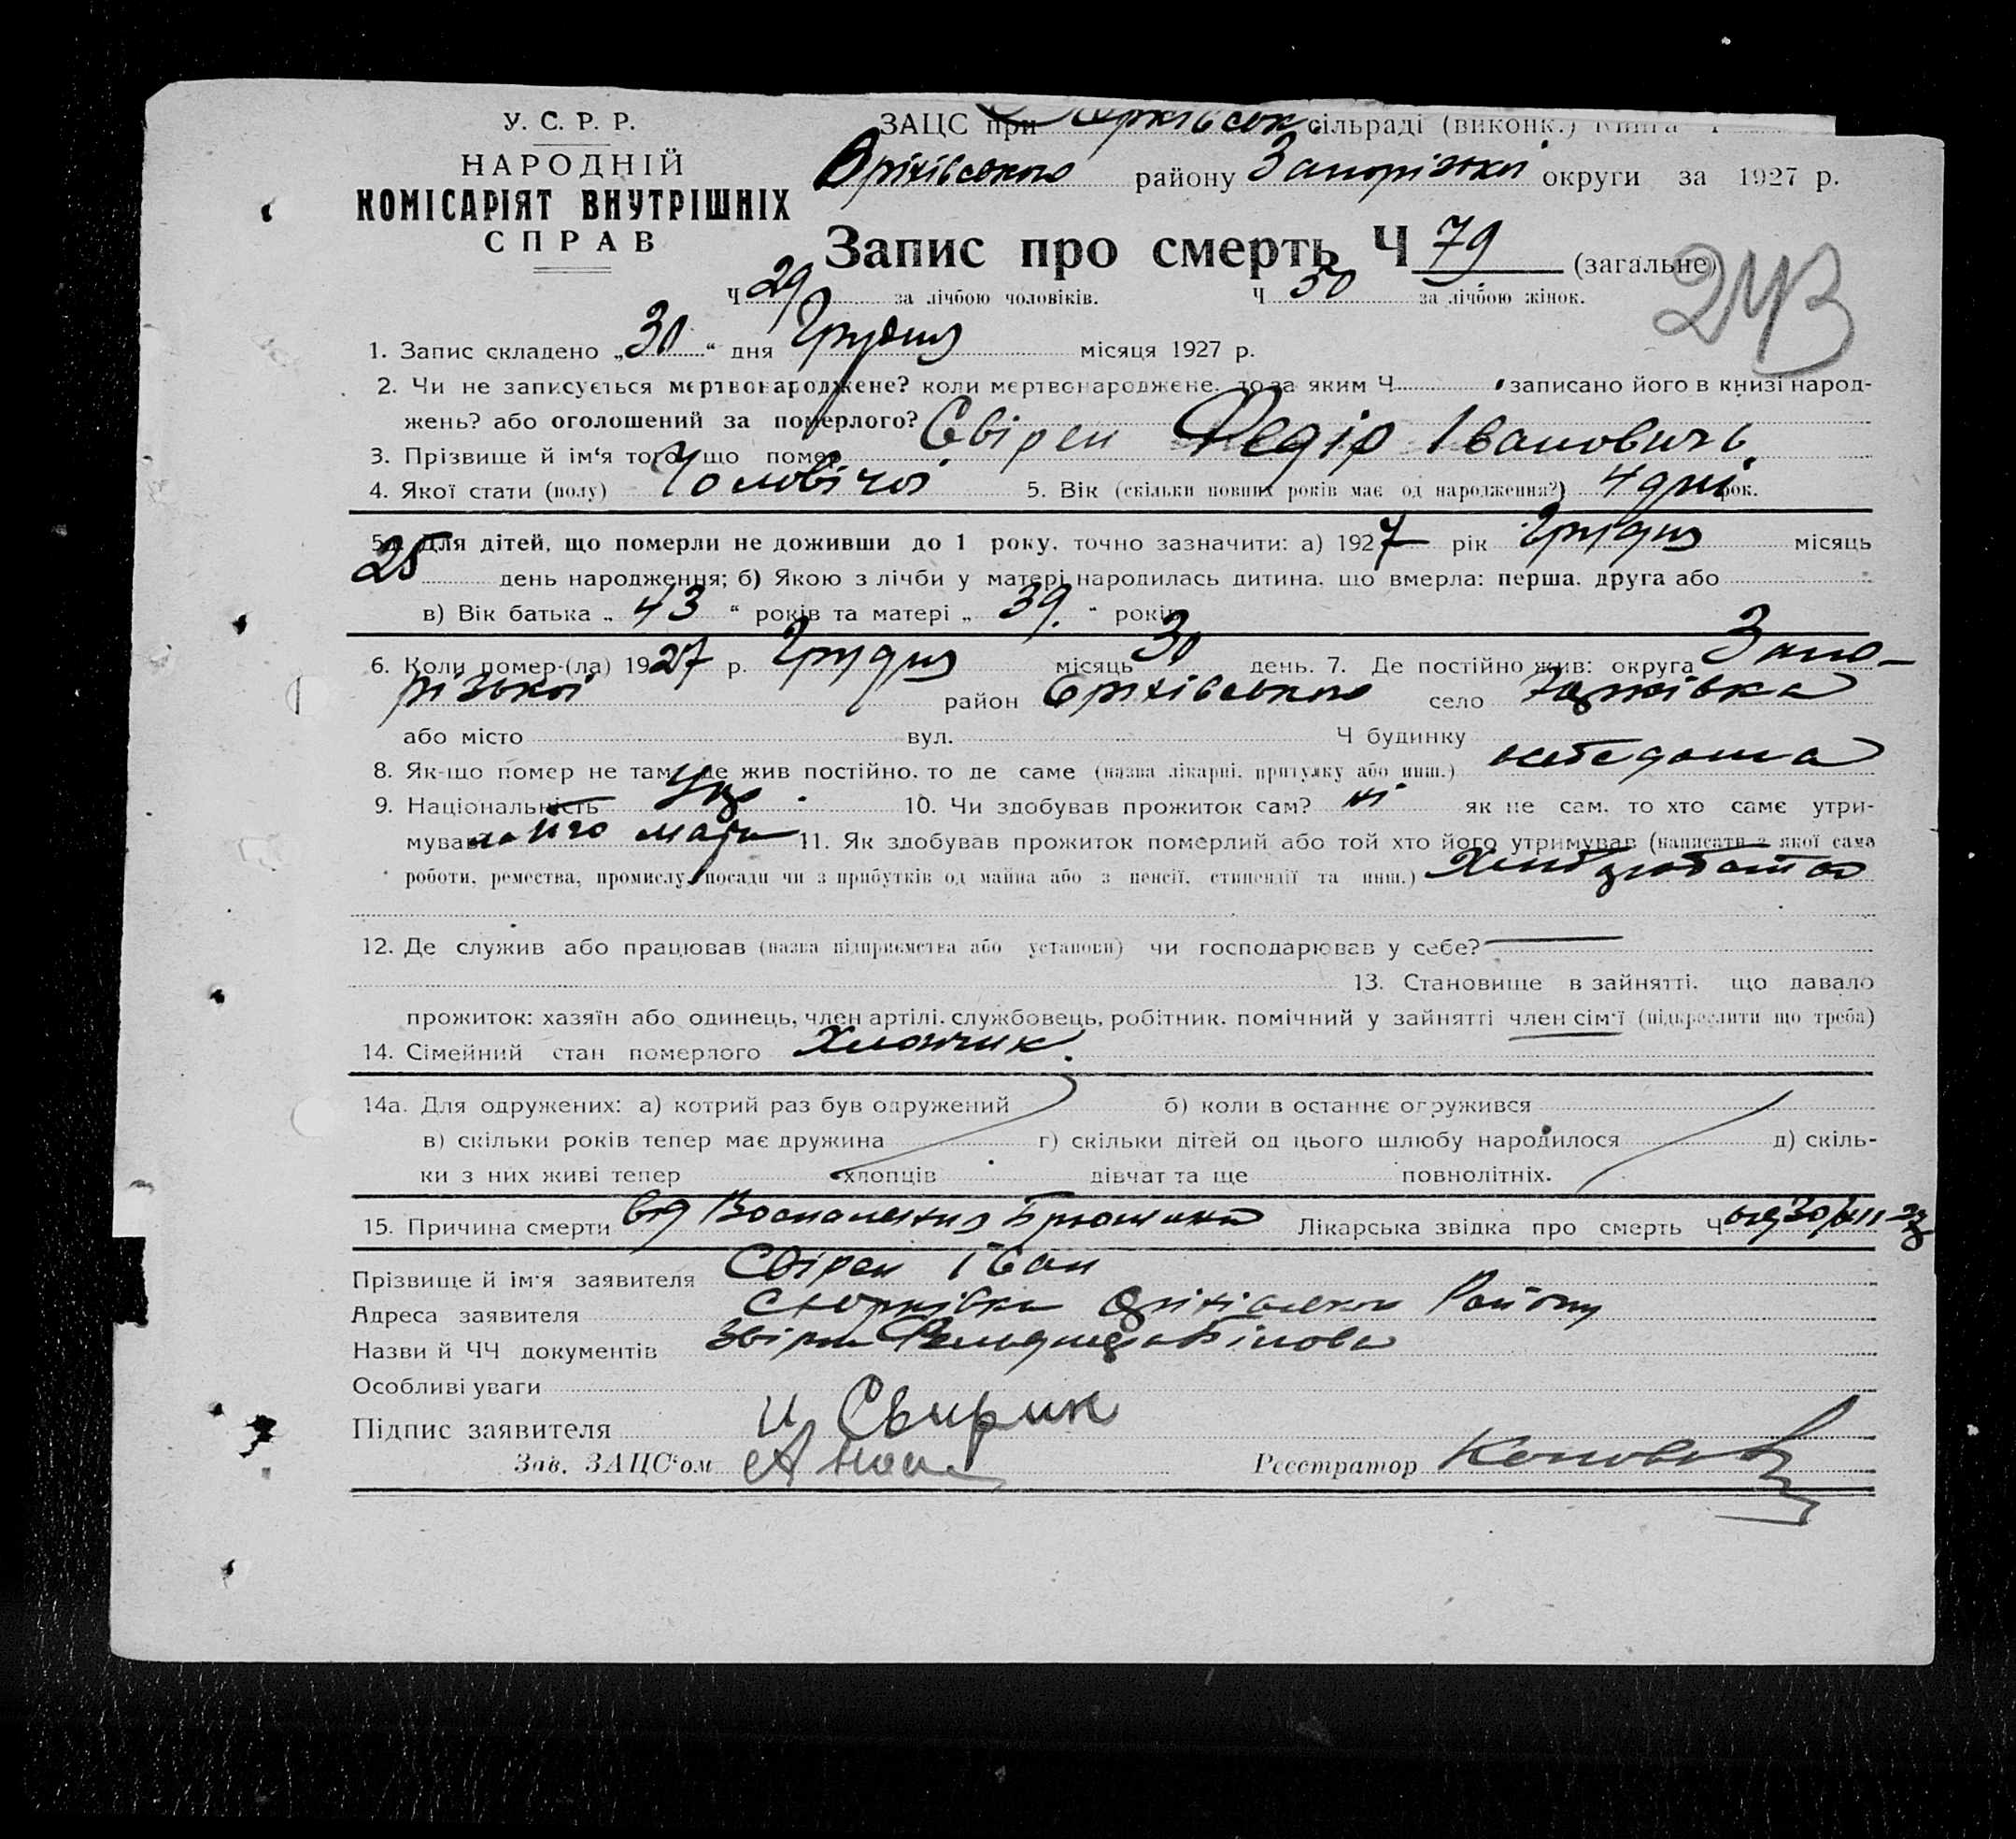 У. С. Р. Р.
НАРОДНІЙ
КОМІСАРІЯТ ВНУТРІШНІХ
СПРАВ
ЗАЦС при сільраді (виконк.) Книга
Оріхівського району Запорізької округи за 1927 р.
Запис про смерть Ч 79 (загальне)
243
Ч 29 за лічбою чоловіків. Ч 50 за лічбою жінок.
1. Запис складено „30“ дня Грудня місяця 1927 р.
2. Чи не записується мертвонароджене? коли мертвонароджене, то за яким Ч записано його в книзі народ-
жень? або оголошений за померлого?
3. Прізвище й ім‘я того, що помер Свірен Федір Іванович
4. Якої стати (полу) Чоловічої 5. Вік (скільки повних років має од народження?) 4 дні рок.
5а. Для дітей, що померли не доживши до 1 року, точно зазначити: а) 1927 рік Грудня місяць
25 день народження; б) Якою з лічби у матері народилась дитина, що вмерла: перша, друга або
в) Вік батька „43“ років та матері „39“ років
6. Коли помер-(ла) 1927 р. Грудня місяць 30 день. 7. Де постійно жив: округа Запо-
різької район Оріхівського село
або місто вул. Ч будинку
8. Як-що помер не там, де жив постійно, то де саме (назва лікарні, притулку або инш.) у себе дома
9. Національність Укр. 10. Чи здобував прожиток сам? ні як не сам, то хто саме утри-
мував його мати 11. Як здобував прожиток померлий або той хто його утримував (написати з якої сама
роботи, ремества, промислу, посади чи з прибутків од майна або з пенсії, стипендії та инш.)
12. Де служив або працював (назва підприємства або установи) чи господарював у себе? —
13. Становище в зайнятті, що давало
прожиток: хазяїн або одинець, член артілі, службовець, робітник, помічний у зайнятті член сім‘ї (підкреслити що треба)
14. Сімейний стан померлого Хлопчик.
14а. Для одружених: а) котрий раз був одружений б) коли в останнє огружився
в) скільки років тепер має дружина г) скільки дітей од цього шлюбу народилося д) скіль-
ки з них живі тепер хлопців дівчат та ще повнолітніх.
15. Причина смерти від Воспаления Брюшины Лікарська звідка про смерть Ч від 30/XII 27
Прізвище й ім‘я заявителя Свірен Іван
Адреса заявителя Оріхівського Району
Назви й ЧЧ документів
Особливі уваги
Підпис заявителя И Свирин
Зав. ЗАЦС‘ом
Реєстратор